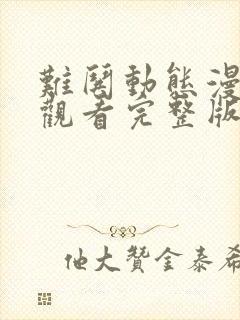 難鬩動態漫
觀看完整版
他大贊金泰希